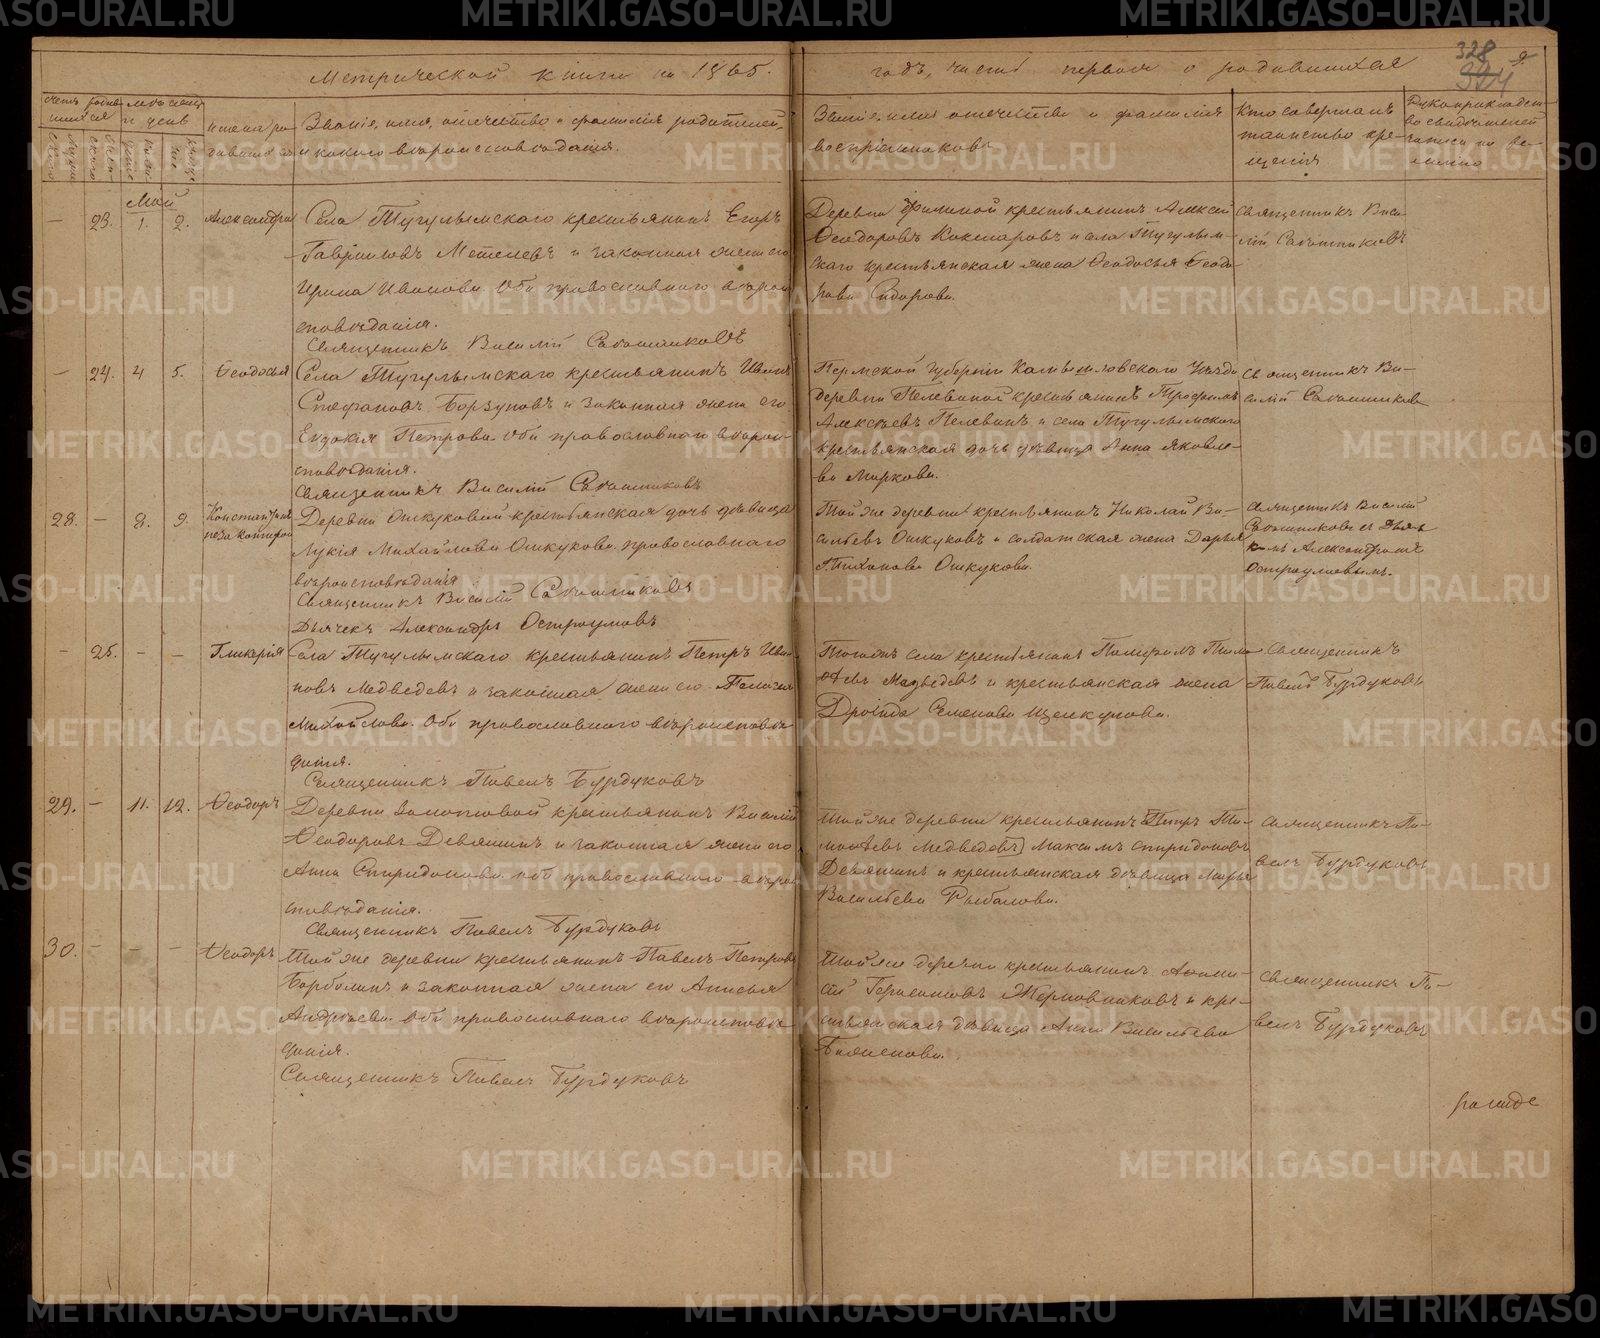 328
Метрической книги на 1865.
годъ, часть первая о родившихся
Счетъ родив-
шихся
Мѣсяцъ
и день
Имена ро-
дившихся
Званіе, имя, отчество и фамилія родителей,
и какого вѣроисповѣданія.
Званіе, имя отчество и фамилія
воспріемниковъ
Кто совершалъ
таинство кре-
щенія
Рукоприкладст-
во свидѣтелей
записи по же-
ланію
Май
— 23. 1. 2. Александра
Села Тугулымскаго крестьянинъ Егоръ
Гавриловъ Метелевъ и законная жена его
Ирина Иванова. Оба православнаго вѣрои-
сповѣданія.
Священникъ Василій Сапожниковъ
Деревни Филиной крестьянинъ Алексей
Ѳеодоровъ Кокшаровъ и села Тугулым-
скаго крестьянская жена Ѳеодосья Ѳеодо-
рова Сидорова.
Священникъ Васи-
лій Сапожниковъ
— 24. 4 5. Ѳеодосья
Села Тугулымскаго крестьянинъ Иванъ
Стефановъ Борзуновъ и законная жена его
Евдокія Петрова. Оба православнаго вѣрои-
сповѣданія.
Священникъ Василій Сапожниковъ
Пермской губерніи Камышловскаго Уѣзда
деревни Пелевиной крестьянинъ Трофимъ
Алексѣевъ Пелевинъ и села Тугулымскаго
крестьянская дочь дѣвица Анна Яковле-
ва Маркова.
Священникъ Ва-
силій Сапожниковъ
28. — 8. 9. Константинъ
незаконнорож
Деревни Ошкуковой крестьянская дочь дѣвица
Лукія Михайлова Ошкукова. православнаго
вѣроисповѣданія
Священникъ Василій Сапожниковъ
Дьячекъ Александръ Остроумовъ
Той же деревни крестьянинъ Николай Ва-
сильевъ Ошкуковъ и солдатская жена Дарья
Тиханова Ошкукова.
Священникъ Василій
Сапожниковъ съ Дьяч-
комъ Александромъ
Остроумовымъ.
— 25. — — Гликерія
Села Тугулымскаго крестьянинъ Петръ Ива-
новъ Медведевъ и законная жена его Пелагея
Михайлова. Оба православнаго вѣроисповѣ-
данія.
Священникъ Павелъ Бурдуковъ
Тогожъ села крестьянинъ Памфилъ Тимо-
ѳѣевъ Медведевъ и крестьянская жена
Дроида Семенова Щелкунова.
Священникъ
Павелъ Бурдуковъ
29. — 11. 12. Ѳеодоръ
Деревни Золотовой крестьянинъ Василій
Ѳеодоровъ Девяшинъ и законная жена его
Анна Спиридонова. оба православнаго вѣрои-
сповѣданія.
Священникъ Павелъ Бурдуковъ
Той же деревни крестьянинъ [Петръ Ти-
моѳѣевъ Медведевъ] Максимъ Спиридоновъ
Девяшинъ и крестьянская дѣвица Марья
Васильева Рыбалова.
Священникъ Па-
велъ Бурдуковъ
30. — — — Ѳеодоръ
Той же деревни крестьянинъ Павелъ Петровъ
Барболинъ и законная жена его Анисья
Андреева. Оба православнаго вѣроисповѣ-
данія.
Священникъ Павелъ Бурдуковъ
Той же деревни крестьянинъ Авона-
сій Герасимовъ Жерновниковъ и кре-
стьянская дѣвица Анна Васильева
Базленова.
Священникъ Па-
велъ Бурдуковъ
METRIKI.GASO-URAL.RU